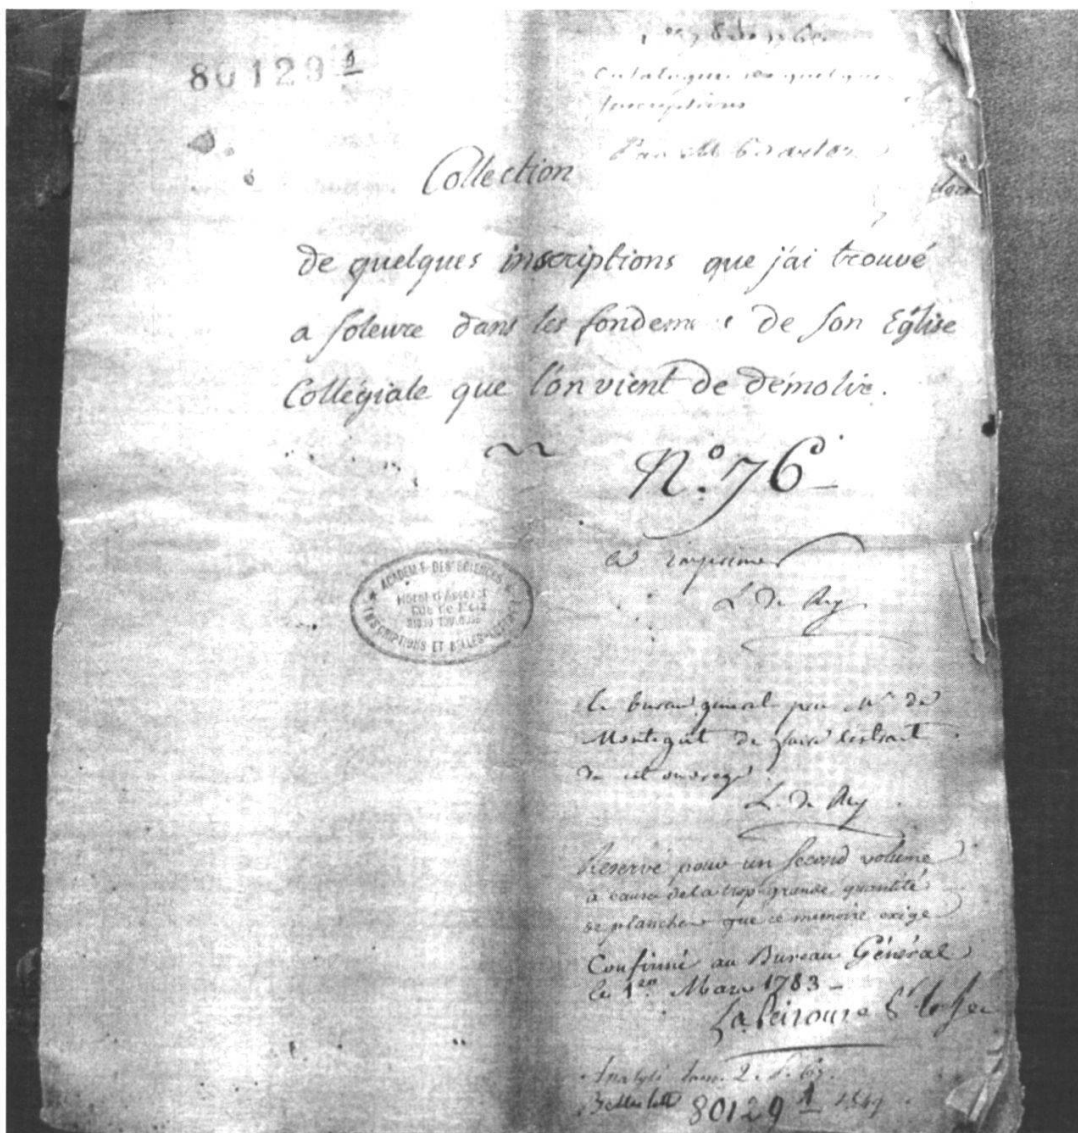 80129 1
Catalogue de quelques
Inscriptions
Par M
Collection
de quelques inscriptions que j'ai trouvé
a soleure dans les fondem s de son Eglise
Collégiale que l'on vient de démolir.
N.o 76
a imprimer
L. de Rey
ACADEMIE DES SCIENCES
INSCRIPTIONS ET BELLES-LETTRES
HOTEL D'ASSEZAT
Rue de Metz
31000 TOULOUSE
le bureau general prie Mr. de
Montegut de faire l'extrait
de cet ouvrage
L. de Rey
Reservé pour un second volume
a cause de la trop grande quantité
de planches que ce memoire exige
Confirmé au Bureau Général
le 1er Mars 1783
Lapeirouse
Analysé tom. 2. p.
Belles lett 80129 1